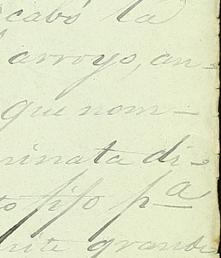 cabó la
arroyo, an-
que nom-
minata di-
to fijo p.ª
ante grande